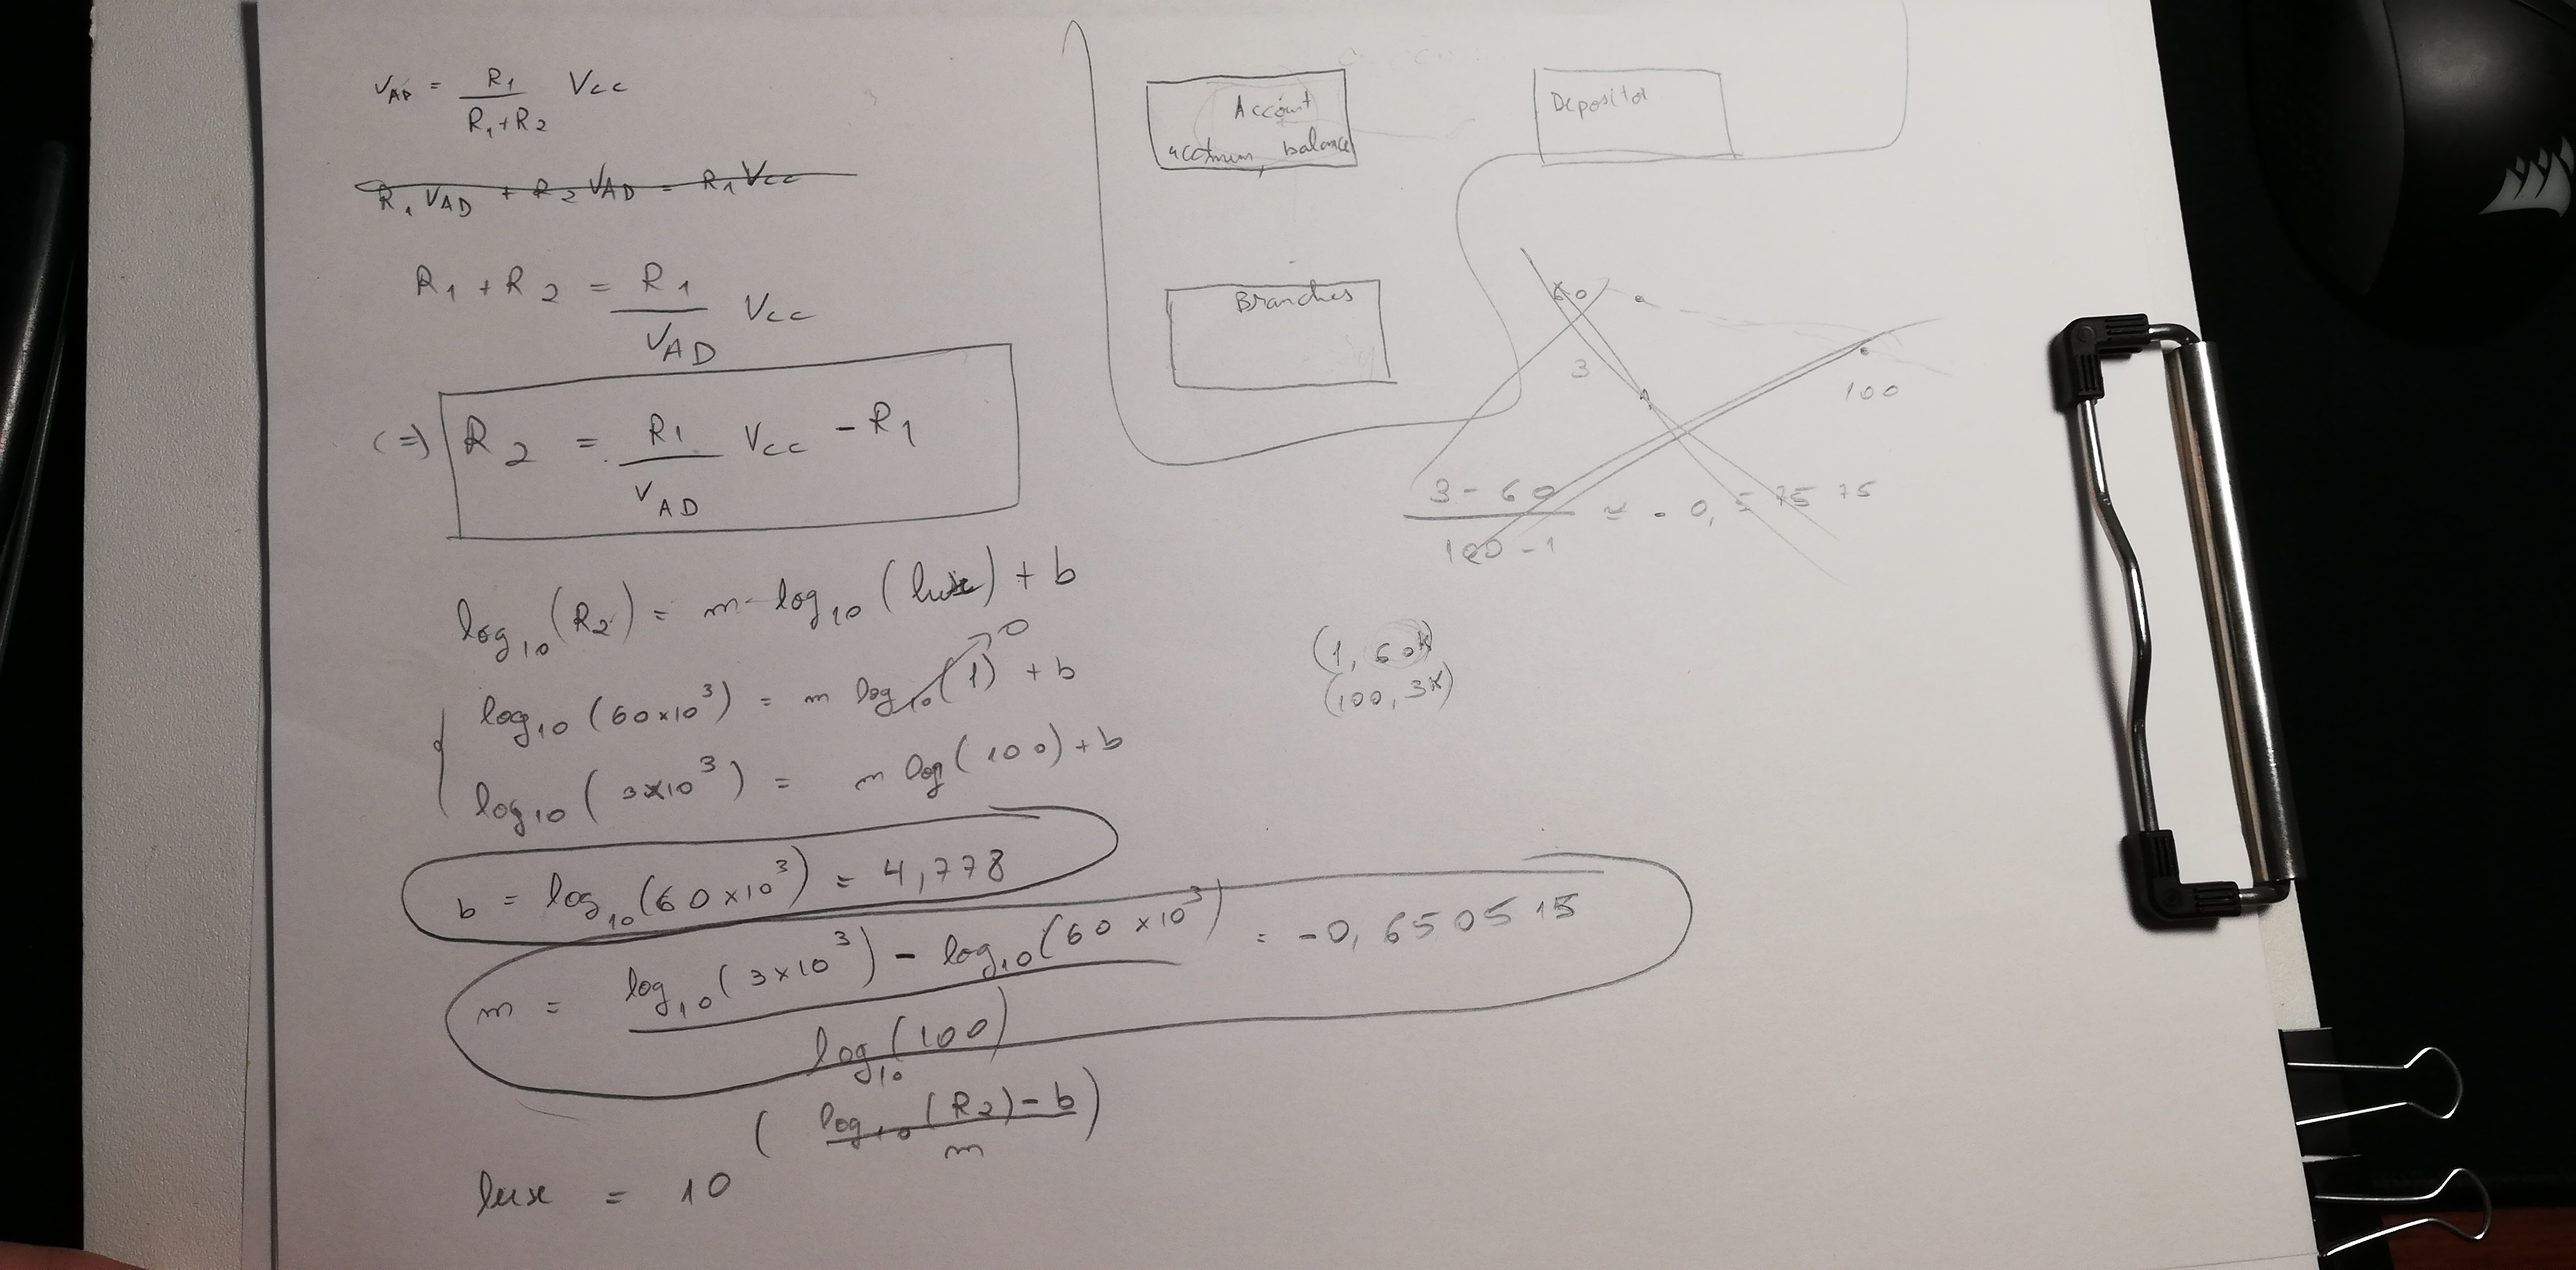 V_AD = R1 / (R1+R2) Vcc
R1 VAD + R2 VAD = R1 Vcc
R1 + R2 = R1 / VAD Vcc
(=) R2 = R1 / VAD Vcc - R1
log10 (R2) = m log10 (lux) + b
log10 (60x10^3) = m log10 (1) + b → 0
log10 (3x10^3) = m log (100) + b
b = log10 (60x10^3) = 4,778
m = (log10 (3x10^3) - log10 (60x10^3)) / log10 (100) = -0,650515
lux = 10^((log10 (R2) - b) / m)
Account
balance
Depositor
Branches
60
3
100
(3 - 60) / (100 - 1) ≃ - 0,57575
(1, 60k)
(100, 3k)